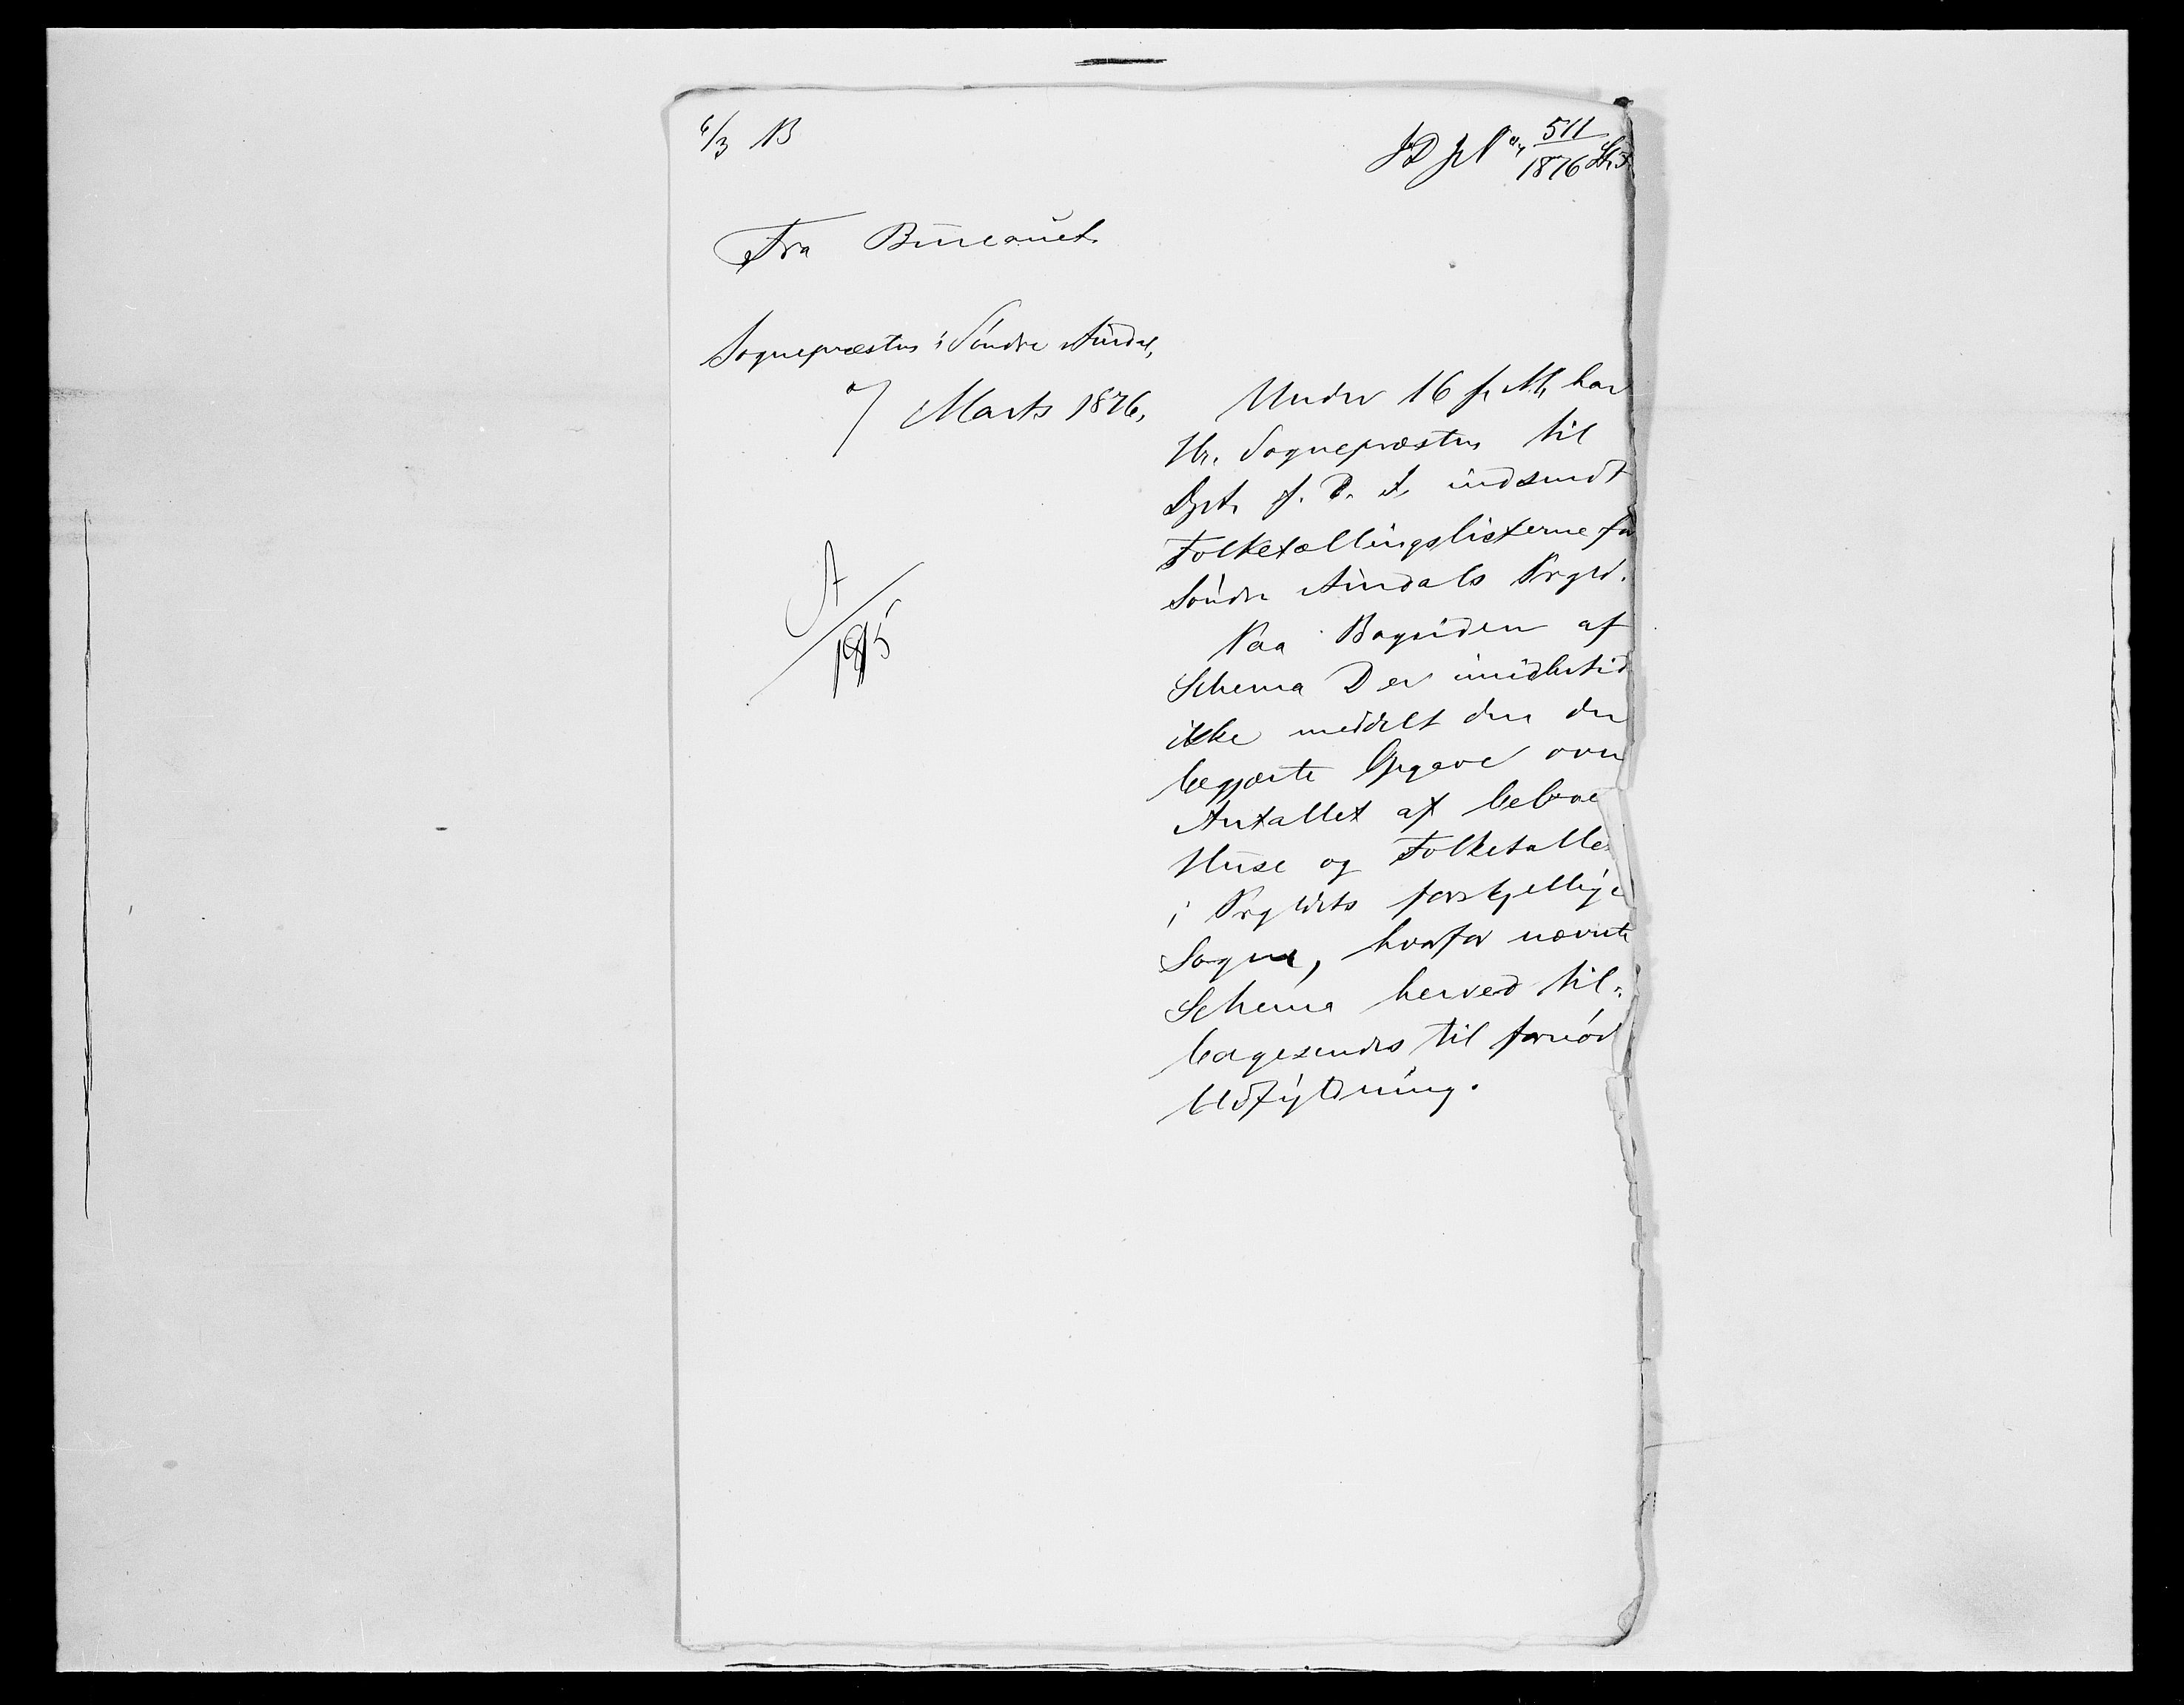 6/3 B
JD J N° 511/1876
Fra Bureauet.
Sognepræsten i Søndre Aurdal,
7 Marts 1876,
A/185
Under 16 f. M. har
Hr. Sognepræsten til
Dpt. f. D. I. indsendt
Folketællingslisterne for
Søndre Aurdals Prgld.
Paa Bagsiden af
Schema D er imidlertid
ikke meddelt den der
begjærte Opgave over
Antallet af beboe
Huse og Folketalle
i Prgldets forskjellige
Sogne, hvorfor nævnte
Schema herved til-
bagesendes til fornød
Udfyldning.